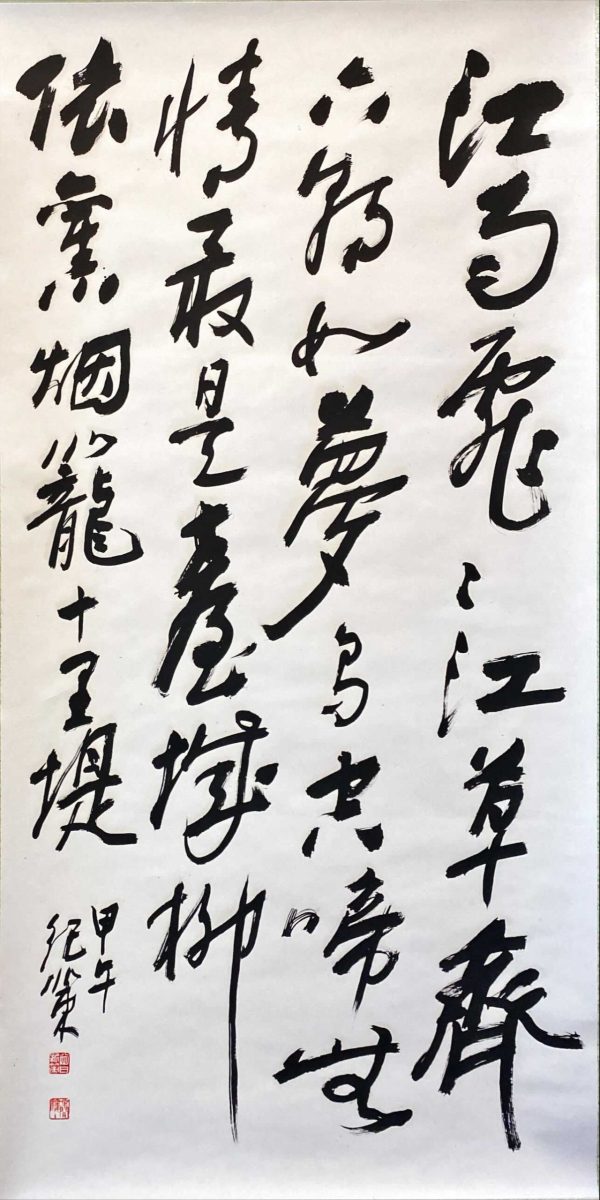 江雨霏〻江草齊
六朝如夢鳥空啼無
情最是臺城柳
依舊烟籠十里堤
甲午
纪策